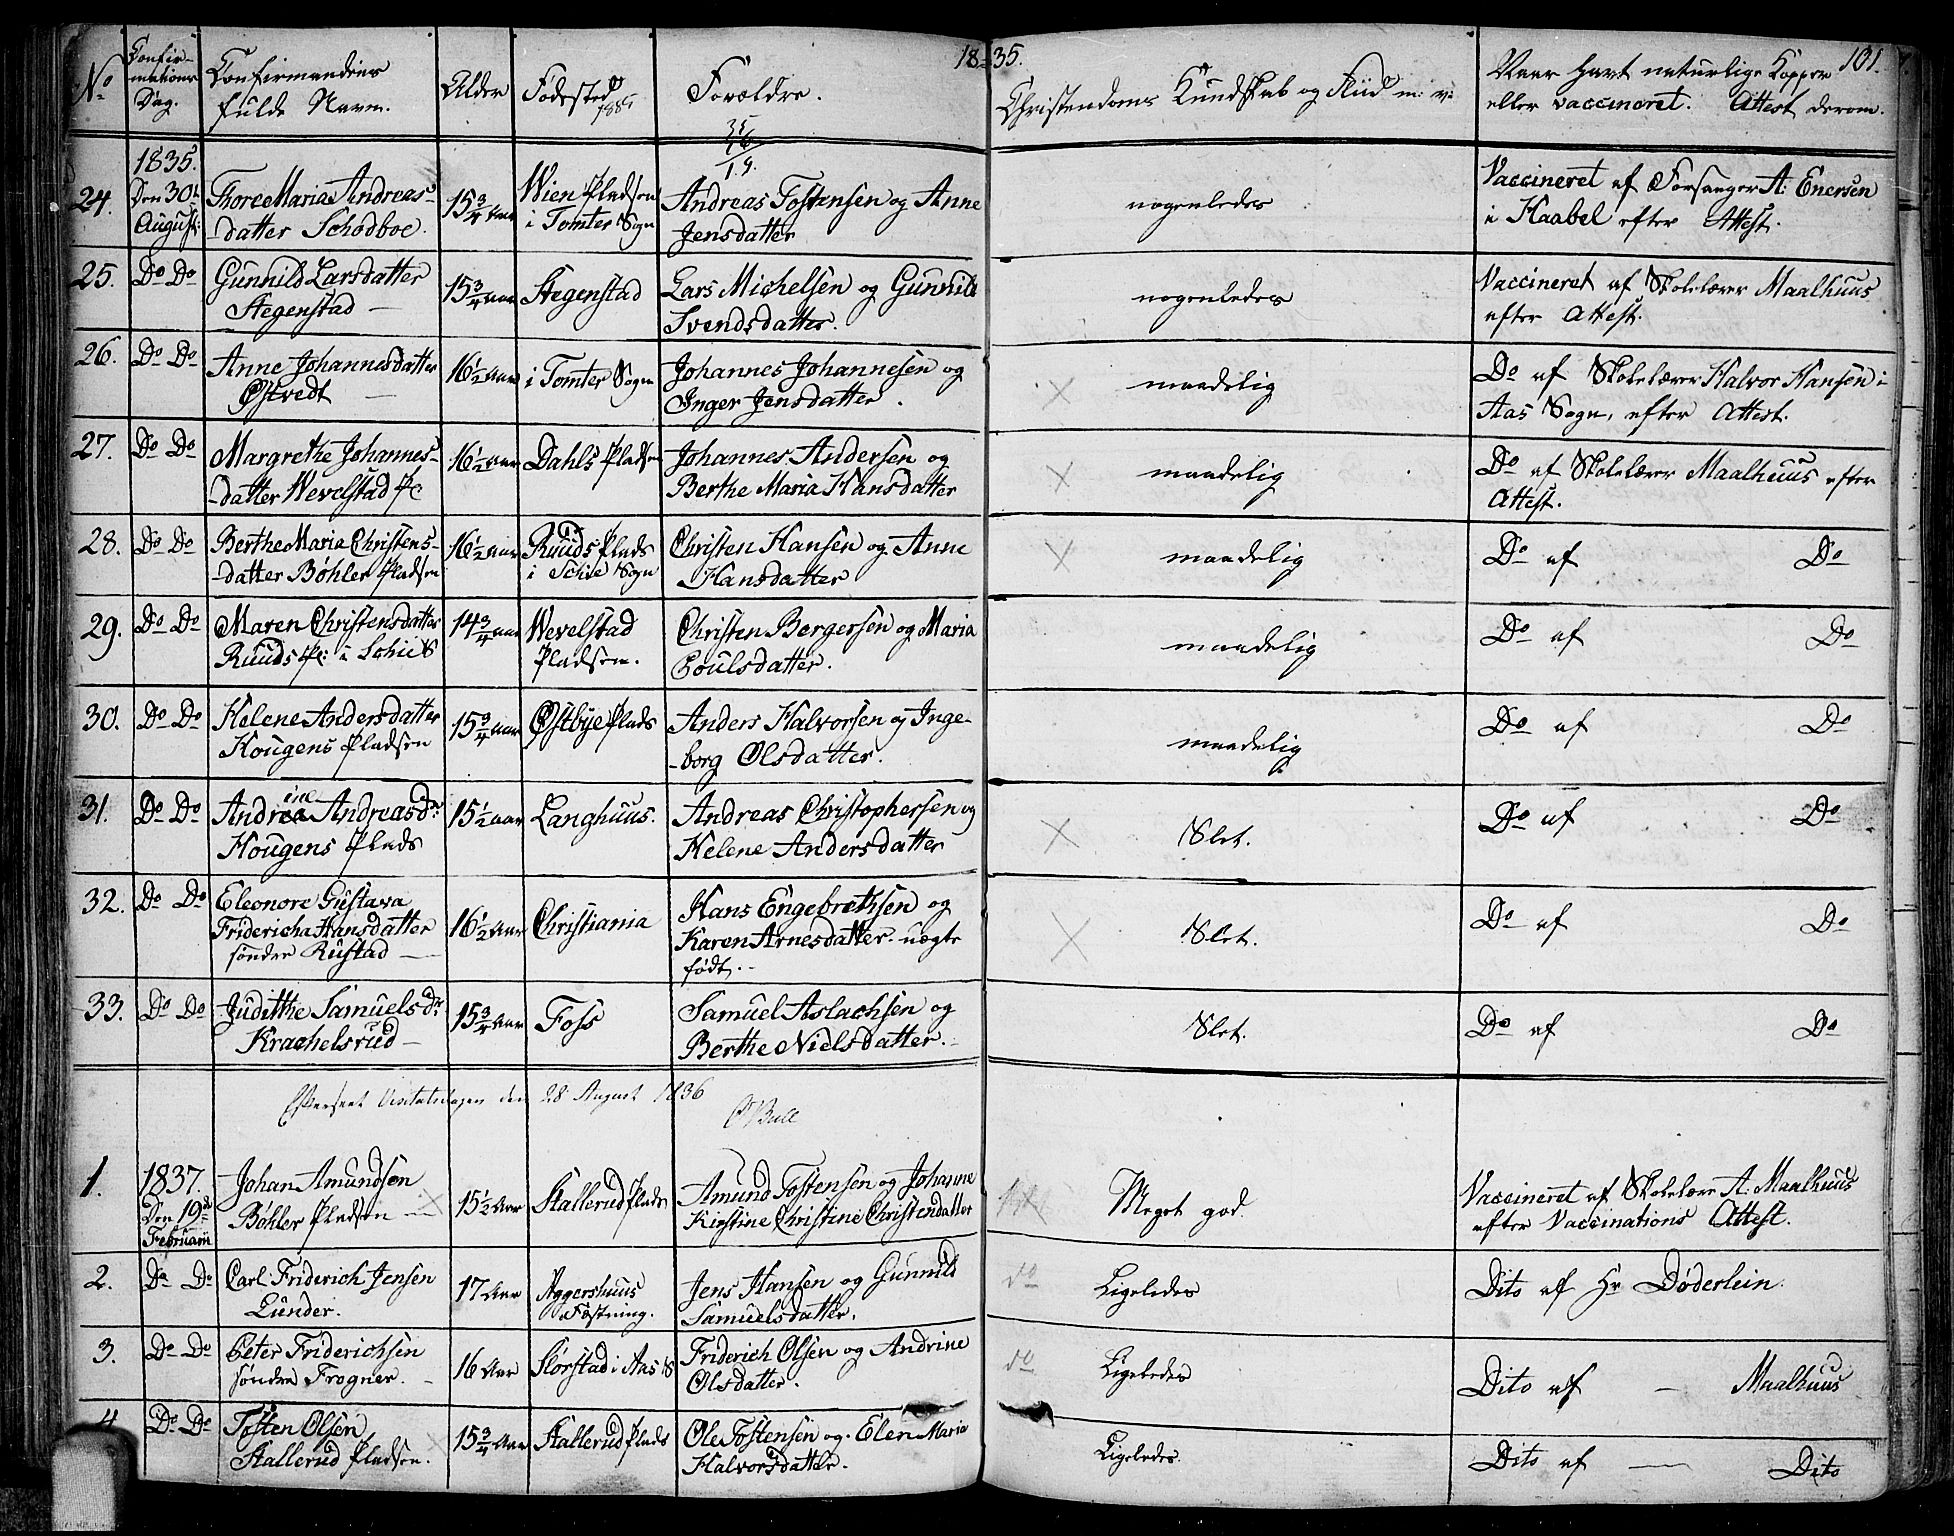 18 35.
101.
No
Confir-
mations
Dag.
Confirmandens
fulde Navn.
Alder
Fødested
Forældre.
Christendoms Kundskab og Flid m: v:
Naar havt naturlige Kopper
eller vaccineret. Attest derom.
35
16
19.
24.
1835.
Den 30te
August.
Thore Maria Andreas-
-datter Schodboe.
15 3/4 Aar
Wien Pladsen
i Tomter Sogn
Andreas Tostensen og Anne
Jensdatter
nogenledes
Vaccineret af Forsanger A: Enersen
i Haabel efter Attest.
25. Do Do
Gunnild Larsdatter
Stegenstad —
15 3/4 aar
Stegenstad
Lars Michelsen og Gunnild
Svendsdatter.
nogenledes
Vaccineret af Skolelærer Maalhuus
efter Attest.
26. Do Do
Anne Johannesdatter
Østvedt —
16 1/2 Aar
i Tomter Sogn
Johannes Johannesen og
Inger Jensdatter.
maadelig
Do af Skolelærer Halvor Hansen i
Aas Sogn, efter Attest.
27. Do Do
Margrethe Johannes-
-datter Wevelstad Pl:
16 1/2 Aar
Dahls Pladsen
Johannes Andersen og
Berthe Maria Hansdatter
maadelig
Do af Skolelærer Maalhuus efter
Attest.
28. Do Do
Berthe Maria Christens-
-datter Bøhler Pladsen
16 1/2 aar
Ruuds Plads
i Schie Sogn
Christen Hansen og Anne
Hansdatter
maadelig
Do af Do
29. Do Do
Maren Christensdatter
Ruuds Pl: i Schie S
14 3/4 aar
Wevelstad
Pladsen.
Christen Bergersen og Maria
Poulsdatter.
maadelig
Do af Do
30. Do Do
Helene Andersdatter
Hougens Pladsen
15 3/4 aar
Østbye Plads
Anders Halvorsen og Inge-
-borg Olsdatter.
maadelig
Do af Do
31. Do Do
ine
Andrea Andreasdr
Hougens Plads
15 1/2 aar
Langhuus.
Andreas Christophersen og
Helene Andersdatter
Slet.
Do af Do
32. Do Do
Eleonore Gustava
Fridericha Hansdatter
søndre Rustad —
16 1/2 Aar
Christiania
Hans Engebrethsen og
Karen Arnesdatter. uægte
født. -
Slet.
Do af Do
33. Do Do
Judithe Samuelsdr
Krachelsrud —
15 3/4 Aar
Foss
Samuel Aslachsen og
Berthe Nielsdatter.
Slet.
Do af Do
Efterseet Visitatsdagen den 28 August 1836
Bull
1.
1837.
Den 19de
Februarii
Johan Amundsen
Bøhler Pladsen —
15 1/2 Aar
Stallerud Plads
Amund Tostensen og Johanne
Kirstine Christine Christendatter
Meget god.
Vaccineret af Skolelære A: Maalhuus
efter Vaccinations Attest.
2. Do Do
Carl Friderich Jensen
Lunder.
17 Aar
Aggershuus
Fæstning.
Jens Hansen og Gunnild
Samuelsdatter.
do
Ligeledes
Dito af Hr Døderlein.
3. Do Do
Peter Friderichsen
søndre Frogner. -
16 Aar
Storstad i Aas S
Friderich Olsen og Andrine
Olsdatter.
do
Ligeledes
Dito af — Maalhuus
4 Do Do
Tosten Olsen
Stallerud Pladsen.
15 3/4 Aar
Stallerud Plads
Ole Tostensen og Elen Maria
Halvorsdatter.
Ligeledes.
Dito af — Dito